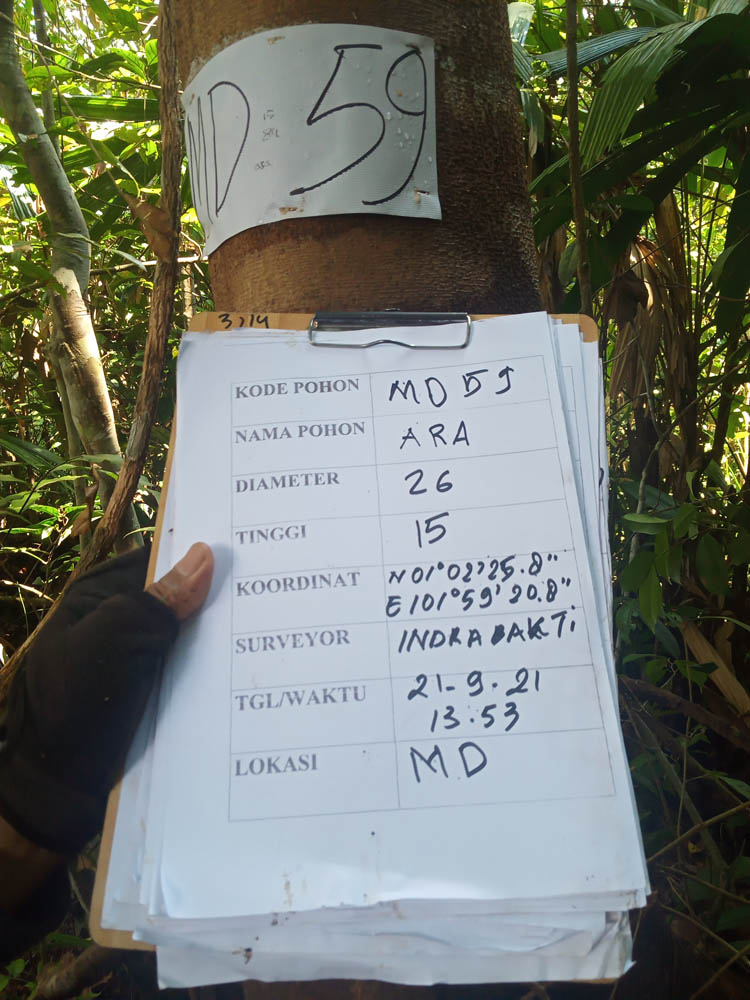 MD 59
KODE POHON MD 59
NAMA POHON ARA
DIAMETER 26
TINGGI 15
KOORDINAT N 01°02'25.8"
E 101°59'20.8"
SURVEYOR INDRA BAKTi
TGL/WAKTU 21-9-21
13.53
LOKASI MD